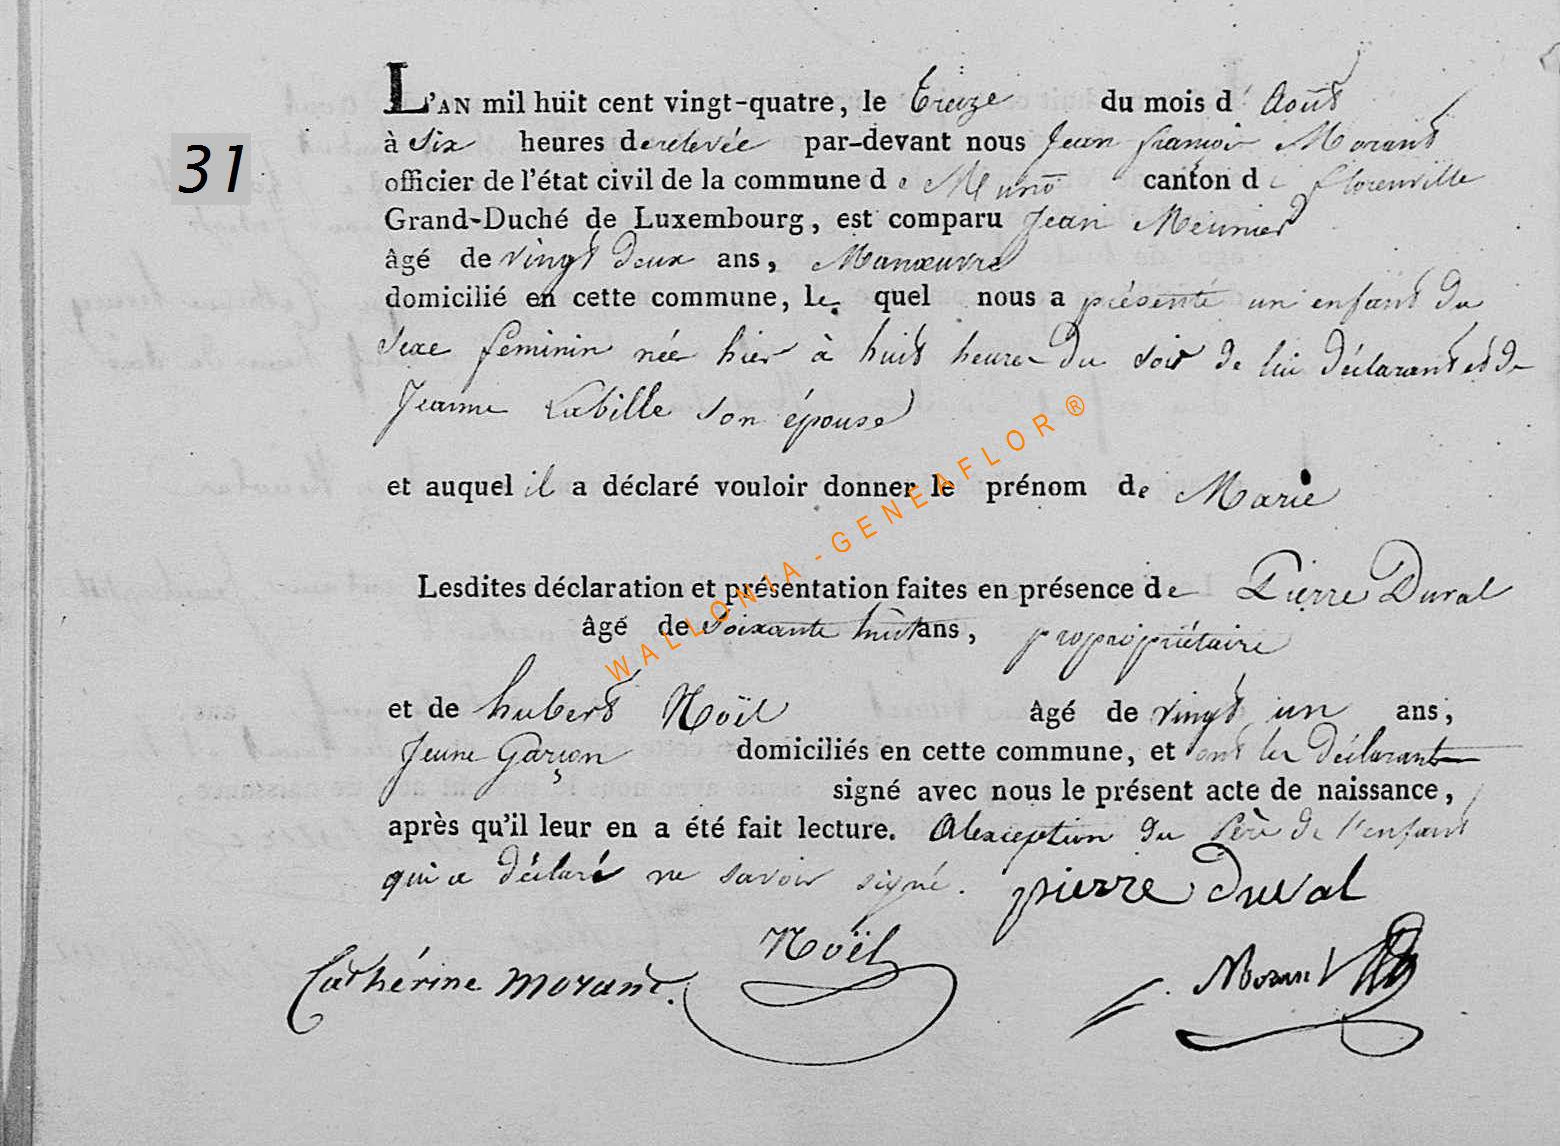 31
L'AN mil huit cent vingt-quatre, le Treize du mois d'Août
à Six heures de relevée par-devant nous Jean françois Morant
officier de l'état civil de la commune de Muno canton de florenville
Grand-Duché de Luxembourg, est comparu Jean Meunier
âgé de vingt deux ans, Manœuvre
domicilié en cette commune, le quel nous a présenté un enfant du
Sexe feminin née hier à huit heures du soir de lui déclarant et de
Jeanne Labille son épouse
et auquel il a déclaré vouloir donner le prénom de Marie
Lesdites déclaration et présentation faites en présence de Pierre Duval
âgé de Soixante huit ans, propropriétaire
et de hubert Noël âgé de vingt un ans,
Jeune Garçon domiciliés en cette commune, et ont les déclarant
signé avec nous le présent acte de naissance,
après qu'il leur en a été fait lecture. Alexception du Père de l'enfant
qui a déclaré ne savoir signé. pierre duval
Noël
Cathérine morant. Morant
WALLONIA-GENEAFLOR®